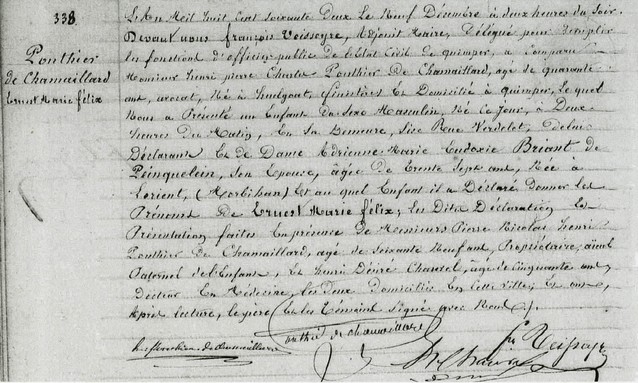 338
Ponthier
de Chamaillard
Ernest Marie félix
L'An Mil huit Cent soixante Deux Le Neuf Décembre à deux heures du Soir
Devant nous françois Adjoint Maire, Délégué pour remplir
les fonctions d'officier public de l'Etat Civil de quimper, a Comparu
Monsieur henri pierre Charles Ponthier De Chamaillard, agé de quarante
ans, avocat, Né à finistère Et Domicilié à quimper, Le quel
Nous a Présenté un Enfant du Sexe Masculin, Né Ce Jour, à Deux
heures du Matin, En Sa Demeure, Sise Rue Verdelet, De lui
Déclarant Et de Dame Adrienne Marie Eudoxie Briant de
Penquelein, Son Epouse, agée de trente Sept ans, Née à
Lorient, (Morbihan) Et au quel Enfant il a Déclaré donner Les
Prénoms De Ernest Marie félix; Les Dites Déclaration Et
Présentation faites En présence de Messieurs Pierre Nicolas henri
Ponthier De Chamaillard, agé de Soixante Neuf ans, Propriétaire, aïeul
Paternel de l'Enfant, Et henri Désiré Chauvel, agé de Cinquante ans,
Docteur En Médecine, les deux Domiciliés En Cette Ville; Et ont,
Après lecture, le père Et les témoins Signé avec Nous.
Ponthier de chamaillard
h. Ponthier de Chamaillard
Chauvel